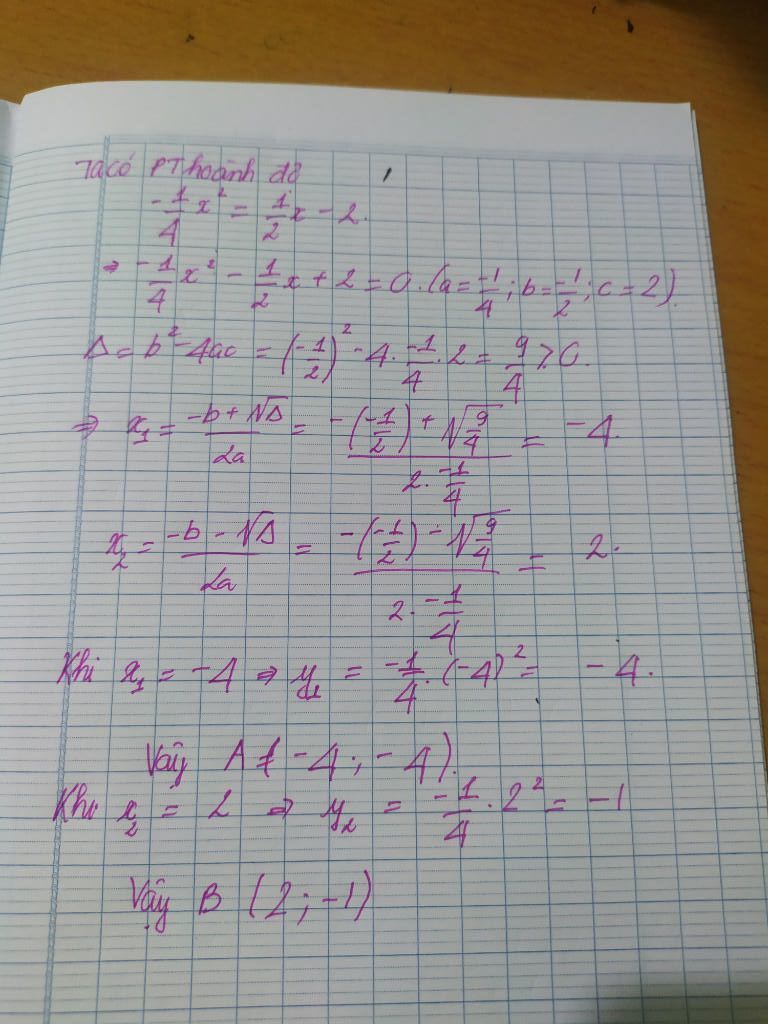 Ta có PT hoành độ
-1/4 x² = 1/2 x - 2.
⇒ -1/4 x² - 1/2 x + 2 = 0. (a = -1/4 ; b = -1/2 ; c = 2).
Δ = b² - 4ac = (-1/2)² - 4 . -1/4 . 2 = 9/4 > 0.
⇒ x₁ = (-b + √Δ)/2a = (-(-1/2) + √(9/4))/(2 . -1/4) = -4.
x₂ = (-b - √Δ)/2a = (-(-1/2) - √(9/4))/(2 . -1/4) = 2.
Khi x₁ = -4 ⇒ y₁ = -1/4 . (-4)² = -4.
Vậy A (-4 ; -4).
Khi x₂ = 2 ⇒ y₂ = -1/4 . 2² = -1
Vậy B (2 ; -1)